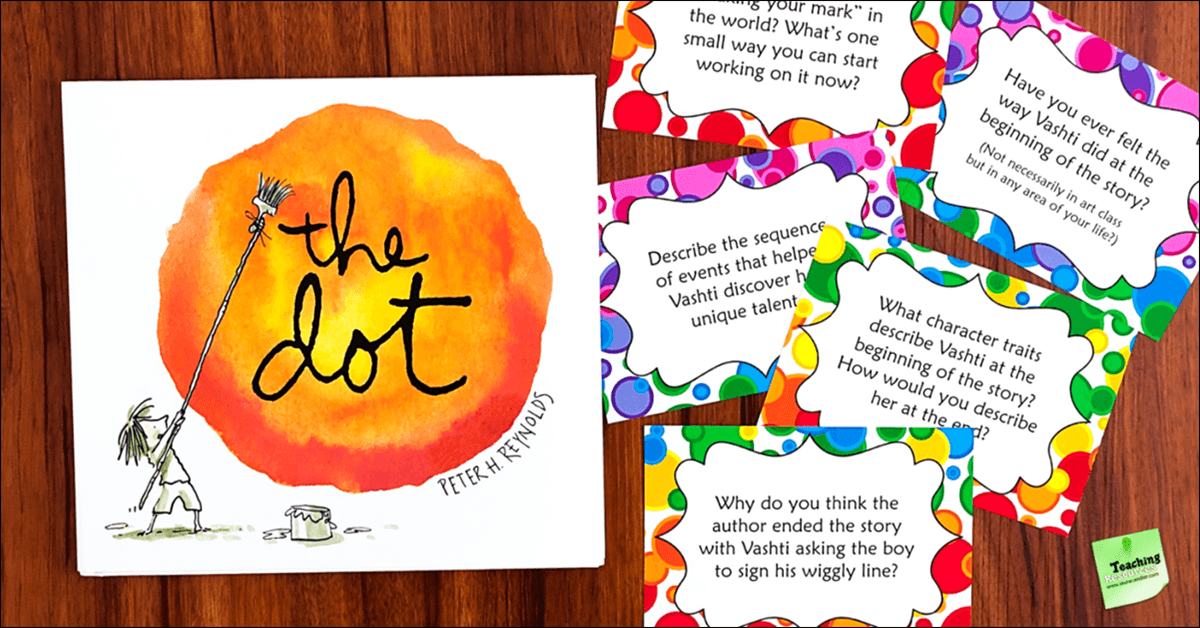 the
dot
PETER H. REYNOLDS
your mark" in
the world? What's one
small way you can start
working on it now?
Have you ever felt the
way Vashti did at the
beginning of the story?
(Not necessarily in art class
but in any area of your life?)
Describe the sequence
of events that helpe
Vashti discover h
unique talent
What character traits
describe Vashti at the
beginning of the story?
How would you describe
her at the end?
Why do you think the
author ended the story
with Vashti asking the boy
to sign his wiggly line?
Teaching
Resources